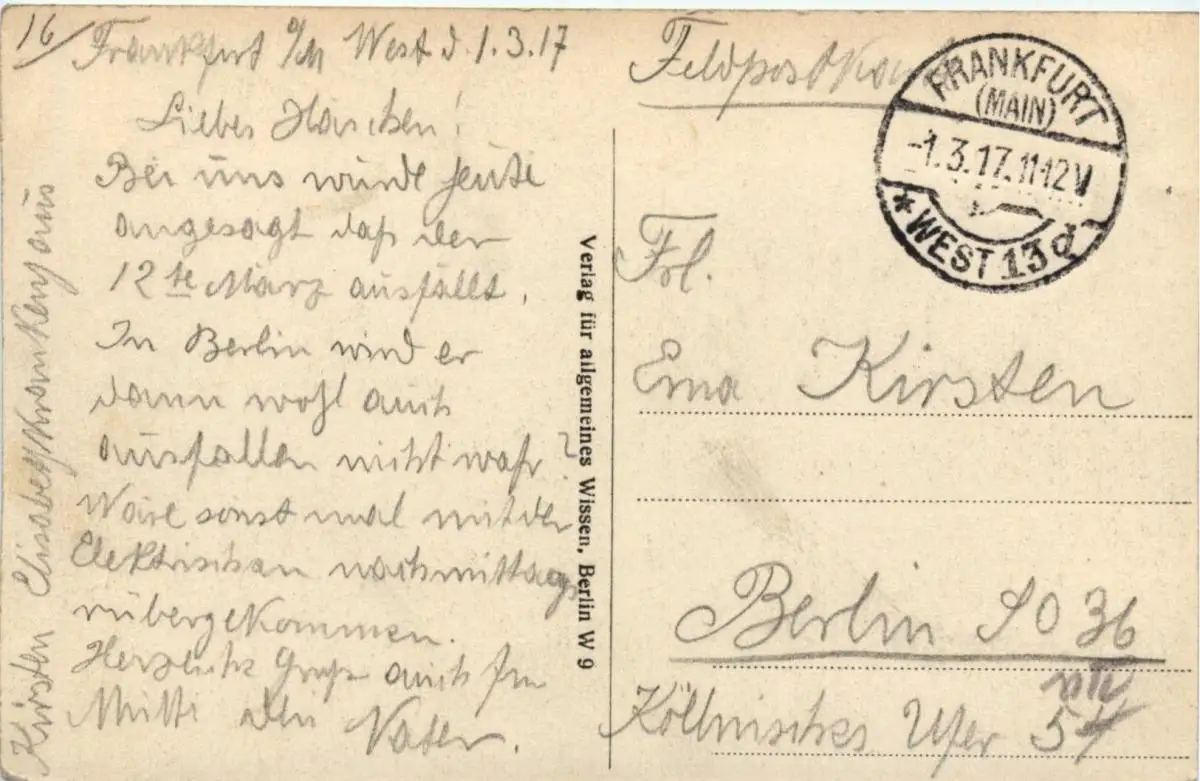 16/ Frankfurt a/M West d. 1.3.17
Liebes Hänschen!
Bei uns wurde heute
angesagt daß der
12te März ausfällt.
In Berlin wird er
dann wohl auch
ausfallen nicht wahr?
Wäre sonst mal mit der
Elektrischen nachmittags
rübergekommen.
Herzliche Gruß auch für
Mutti dein Vater.
Kirsten Elisabeth Krankenhaus
Verlag für allgemeines Wissen, Berlin W 9
Feldpostkarte
FRANKFURT
(MAIN)
-1.3.17.11-12V
* WEST 13d
Frl.
Erna Kirsten
Berlin SO 36
Köllnisches Ufer 54